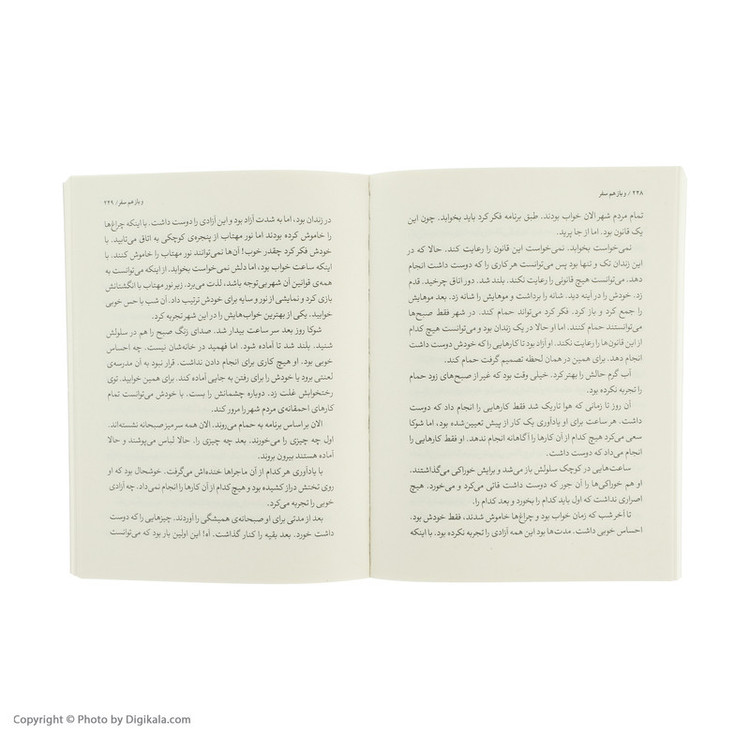 ۲۲۸ / و باز هم سفر
تمام مردم شهر الان خواب بودند. طبق برنامه فکر کرد باید بخوابد. چون این
یک قانون بود. اما از جا پرید.
نمی‌خواست بخوابد. نمی‌خواست این قانون را رعایت کند. حالا که در
این زندان تک و تنها بود پس می‌توانست هر کاری را که دوست داشت انجام
دهد. می‌توانست هیچ قانونی را رعایت نکند. بلند شد. دور اتاق چرخید. قدم
زد. خودش را در آینه دید. شانه را برداشت و موهایش را شانه زد. بعد موهایش
را جمع کرد و باز کرد. فکر کرد می‌تواند حمام کند. در شهر فقط صبح‌ها
می‌توانستند حمام کنند. اما او حالا در یک زندان بود و می‌توانست هیچ کدام
از این قانون‌ها را رعایت نکند. او آزاد بود تا کارهایی را که خودش دوست داشت
انجام دهد. برای همین در همان لحظه تصمیم گرفت حمام کند.
آب گرم حالش را بهتر کرد. خیلی وقت بود که غیر از صبح‌های زود حمام
را تجربه نکرده بود.
آن روز تا زمانی که هوا تاریک شد فقط کارهایی را انجام داد که دوست
داشت. هر ساعت برای او یادآوری یک کار از پیش تعیین‌شده بود، اما شوکا
سعی می‌کرد هیچ کدام از آن کارها را آگاهانه انجام ندهد. او فقط کارهایی را
انجام می‌داد که دوست داشت.
ساعت‌هایی در کوچک سلولش باز می‌شد و برایش خوراکی می‌گذاشتند.
او هم خوراکی‌ها را آن جور که دوست داشت قاتی می‌کرد و می‌خورد. هیچ
اصراری نداشت که اول باید کدام را بخورد و بعد کدام را.
تا آخر شب که زمان خواب بود و چراغ‌ها خاموش شدند، فقط خودش بود.
احساس خوبی داشت. مدت‌ها بود این همه آزادی را تجربه نکرده بود. با اینکه
و باز هم سفر / ۲۲۹
در زندان بود، اما به شدت آزاد بود و این آزادی را دوست داشت. با اینکه چراغ‌ها
را خاموش کرده بودند اما نور مهتاب از پنجره‌ی کوچکی به اتاق می‌تابید. با
خودش فکر کرد چقدر خوب! آن‌ها نمی‌توانند نور مهتاب را خاموش کنند. با
اینکه ساعت خواب بود، اما دلش نمی‌خواست بخوابد. از اینکه می‌توانست به
همه‌ی قوانین آن شهر بی‌توجه باشد، لذت می‌برد. زیر نور مهتاب با انگشتانش
بازی کرد و نمایشی از نور و سایه برای خودش ترتیب داد. آن شب با حس خوبی
خوابید. یکی از بهترین خواب‌هایش را در این شهر تجربه کرد.
شوکا روز بعد سر ساعت بیدار شد. صدای زنگ صبح را هم در سلولش
شنید. بلند شد تا آماده شود. اما فهمید در خانه‌شان نیست. چه احساس
خوبی بود. او هیچ کاری برای انجام دادن نداشت. قرار نبود به آن مدرسه‌ی
لعنتی برود یا خودش را برای رفتن به جایی آماده کند. برای همین خوابید. توی
رختخوابش غلت زد. دوباره چشمانش را بست. با خودش می‌توانست تمام
کارهای احمقانه‌ی مردم شهر را مرور کند.
الان بر اساس برنامه به حمام می‌روند. الان همه سر میز صبحانه نشسته‌اند.
اول چه چیزی را می‌خورند. بعد چه چیزی را. حالا لباس می‌پوشند و حالا
آماده هستند بیرون بروند.
با یادآوری هر کدام از آن ماجراها خنده‌اش می‌گرفت. خوشحال بود که او
روی تختش دراز کشیده بود و هیچ کدام از آن کارها را انجام نمی‌داد. چه آزادی
خوبی را تجربه می‌کرد.
بعد از مدتی برای او صبحانه‌ی همیشگی را آوردند. چیزهایی را که دوست
داشت خورد. بعد بقیه را کنار گذاشت. آه! این اولین بار بود که می‌توانست
Copyright © Photo by Digikala.com